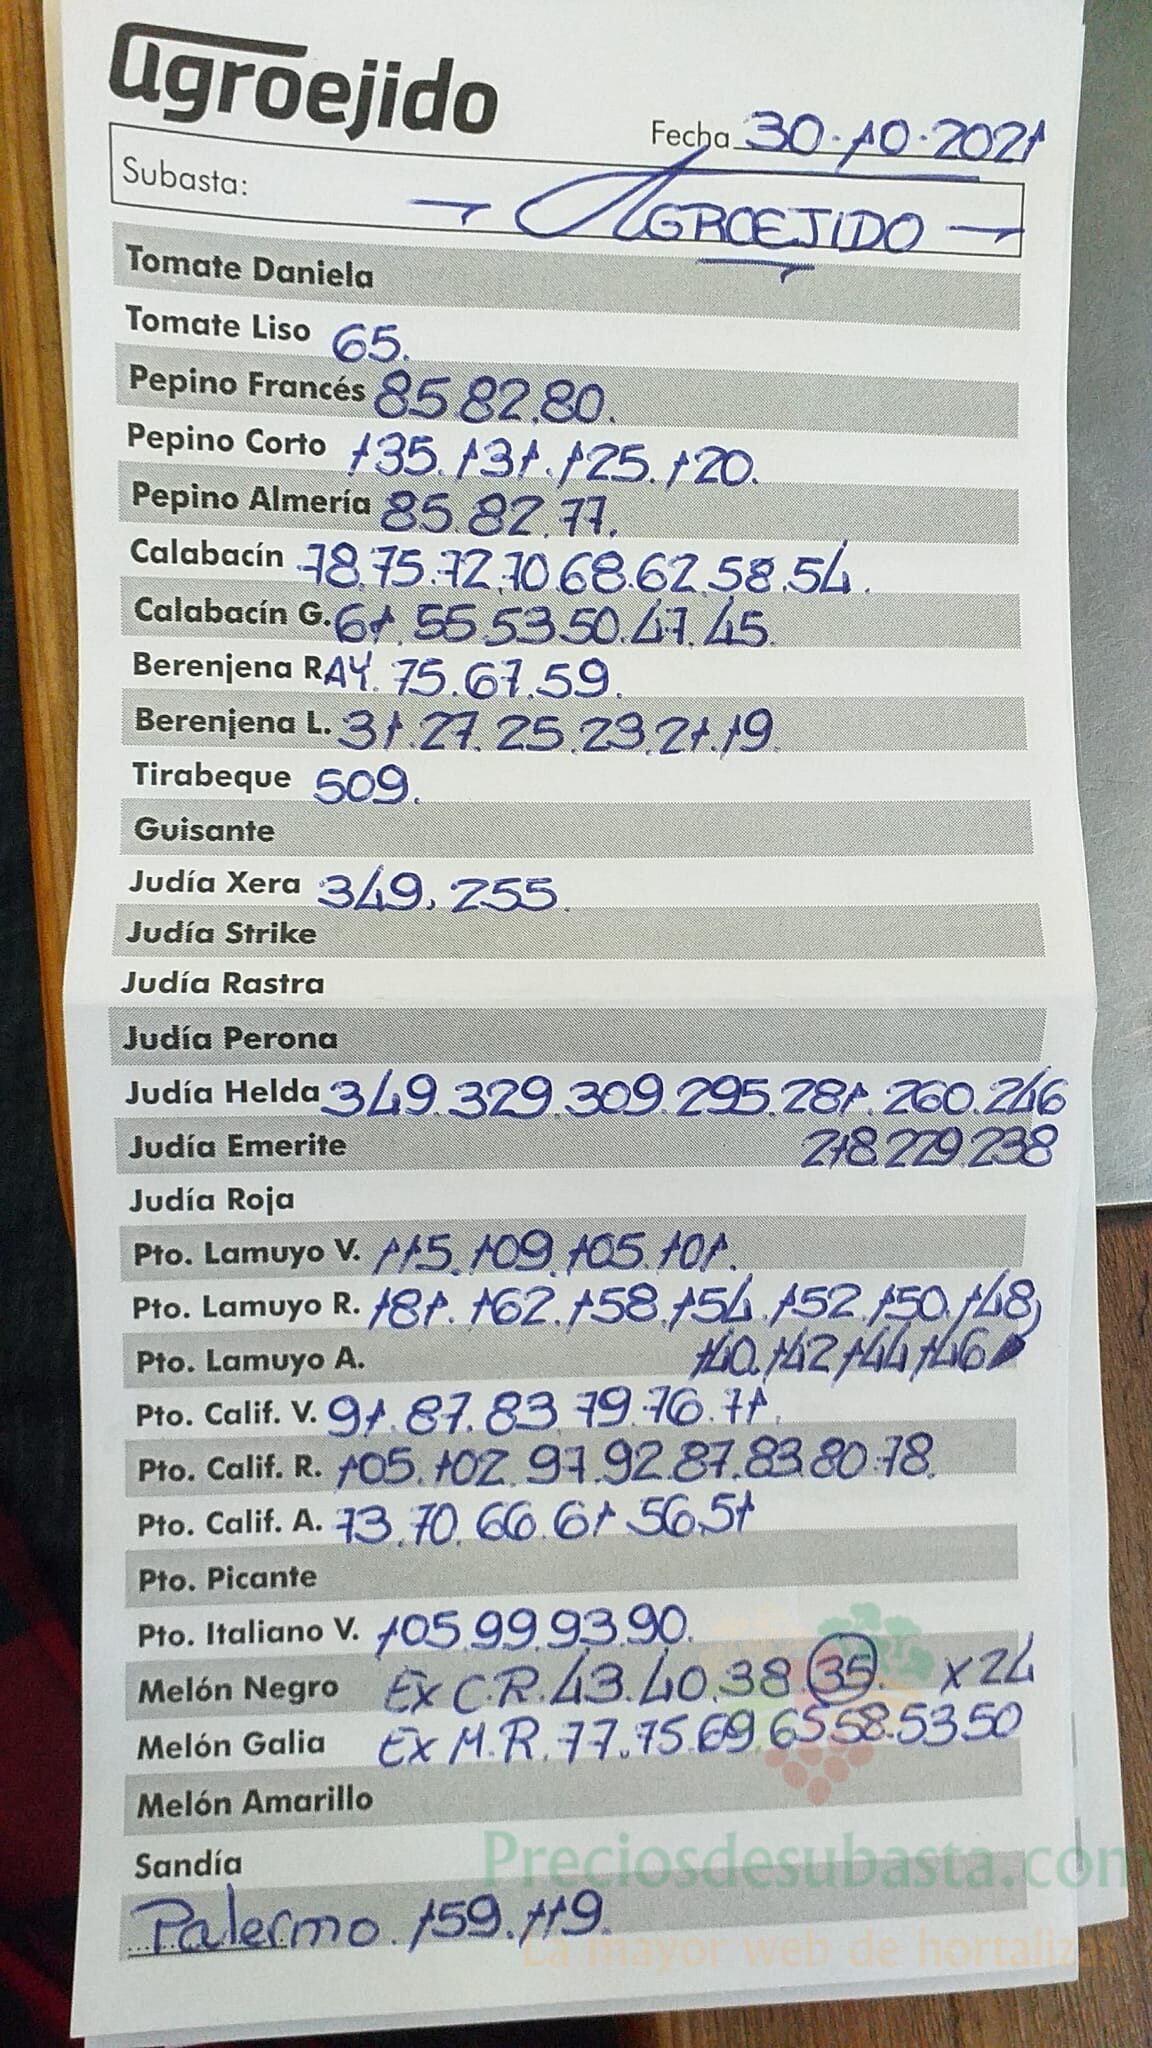 agroejido
Fecha 30-10-2021
Subasta: AGROEJIDO
Tomate Daniela
Tomate Liso 65.
Pepino Francés 85.82.80.
Pepino Corto 135.131.125.120.
Pepino Almería 85.82.77.
Calabacín 78.75.72.70.68.62.58.54.
Calabacín G. 61.55.53.50.47.45.
Berenjena RAY. 75.67.59.
Berenjena L. 31.27.25.23.21.19.
Tirabeque 509.
Guisante
Judía Xera 349, 255.
Judía Strike
Judía Rastra
Judía Perona
Judía Helda 349.329.309.295.281.260.246
Judía Emerite 218.229.238
Judía Roja
Pto. Lamuyo V. 115.109.105.101.
Pto. Lamuyo R. 181.162.158.154.152.150.148
Pto. Lamuyo A. 140.142.144.146
Pto. Calif. V. 91.87.83.79.76.71.
Pto. Calif. R. 105.102.97.92.87.83.80.78.
Pto. Calif. A. 73.70.66.61.56.51
Pto. Picante
Pto. Italiano V. 105.99.93.90.
Melón Negro Ex C.R.43.40.38.35. x24
Melón Galia Ex M.R.77.75.69.65.58.53.50
Melón Amarillo
Sandía
Preciosdesubasta.com
Palermo. 159.119.
La mayor web de hortalizas